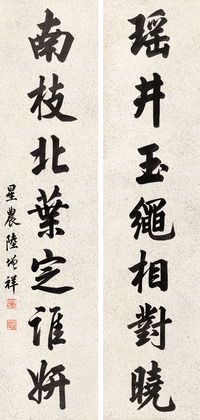 瑤井玉繩相對曉
南枝北葉定誰妍
星農陸增祥